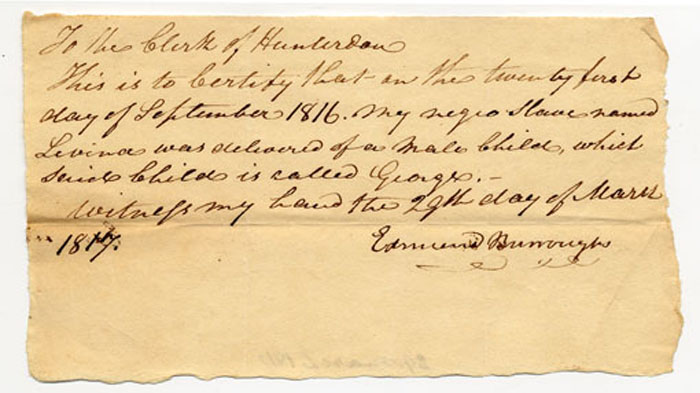 To the Clerk of Hunterdon
This is to Certify that on the twenty first
day of September 1816. My negro Slave named
Levina was delivered of a Male Child, which
said Child is called George. –
Witness my hand the 29th day of March
1817.
Edmund Burrough